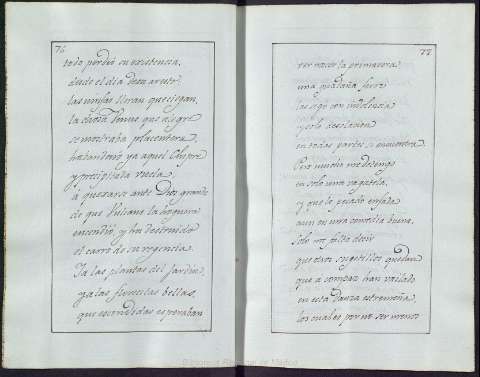 76
todo perdió su existencia.
desde el dia de su arresto
las ninfas lloran que ciegan,
la diosa Venus que alegre
se mostraba placentera,
habandonó ya aquel Chipre
y precipitada vuela
á quexarse ante Dios grande
de que Vulcano la hoguera
encendió, y ha destruido
el carro de su regencia.
Ya las plantas del Jardin,
ya las florecitas bellas,
que escondidas esperaban
77
ver nacer la primavera
una guadaña feroz
las segó con insolencia
y solo desolacion
en todas partes se encuentra.
Pero mucho me detengo
en solo una vagatela,
y que lo pesado enfada
aun en una comedia buena.
Solo me falta decir
que otros sugetillos quedan
que a compas han vailado
en esta danza estremeña,
los cuales por no ser menos
Biblioteca Nacional de México